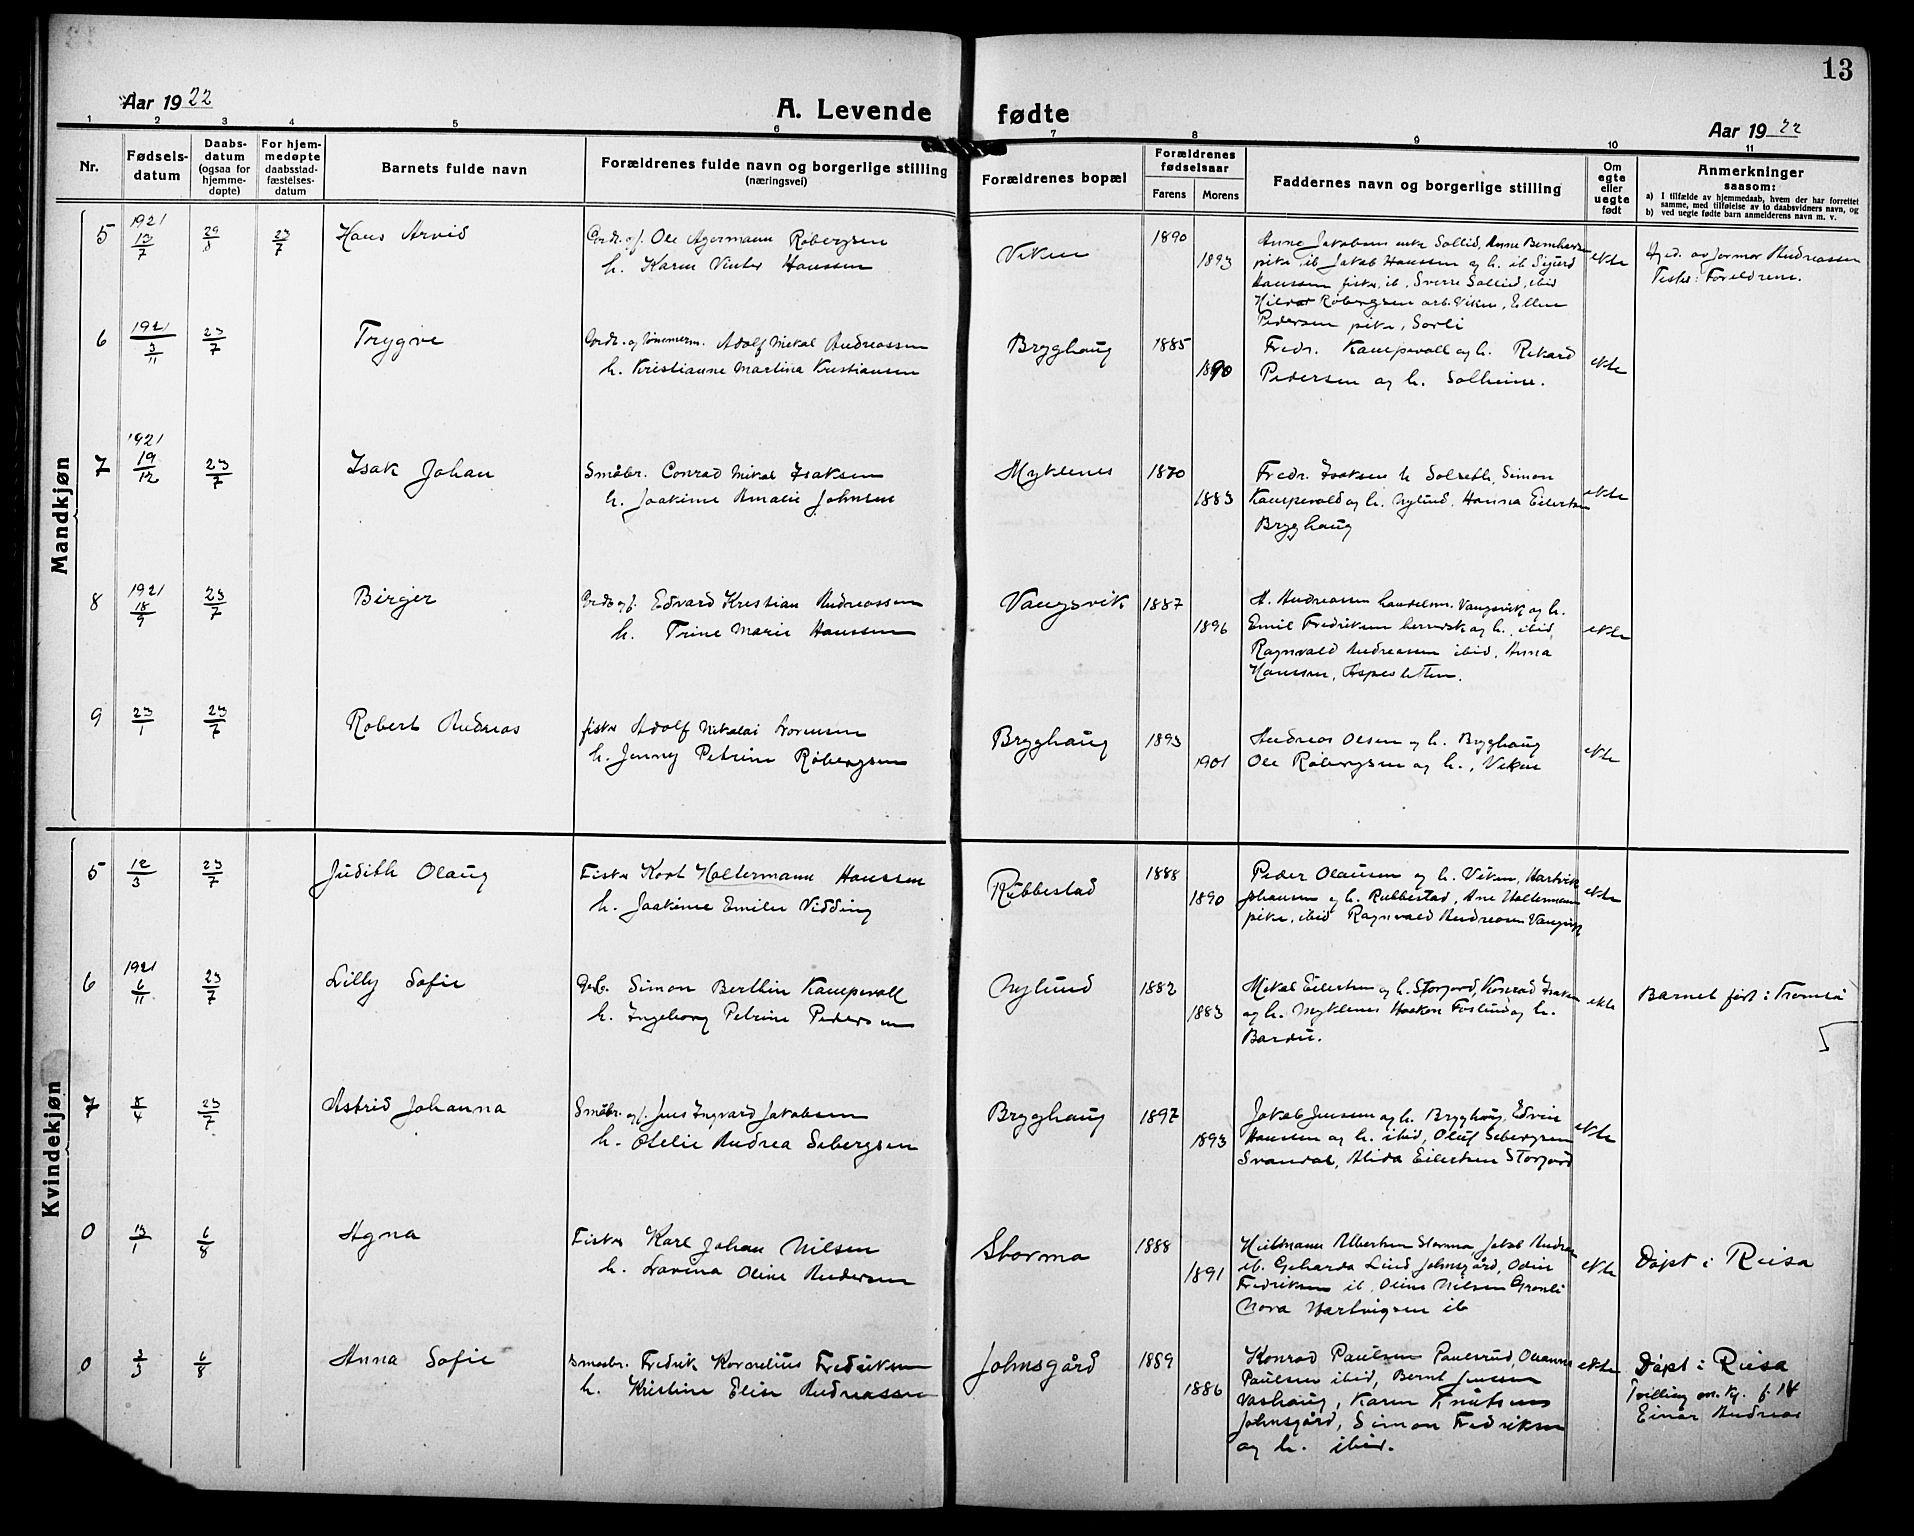 13
Aar 1922
A. Levende fødte
Aar 1922
1 2 3 4 5 6 7 8 9 10 11
Nr.
Fødsels-
datum
Daabs-
datum
(ogsaa for
hjemme-
døpte)
For hjem-
medøpte
daabsstad-
fæstelses-
datum
Barnets fulde navn
Forældrenes fulde navn og borgerlige stilling
(næringsvei)
Forældrenes bopæl
Forældrenes
fødselsaar
Farens
Morens
Faddernes navn og borgerlige stilling
Om
egte
eller
uegte
født
Anmerkninger
saasom:
a) I tilfælde av hjemmedaab, hvem der har forrettet
samme, med tilføielse av to daabsvidners navn, og
b) ved uegte fødte barn anmelderens navn m. v.
Mandkjøn
5 1921 13/7 23/7 Hans Arvid
Ole Agermann Røbergsen
h. Karen Vinter Hanssen
Viken 1890 1893
Anne Jakobsen enke Sollid, Anne
pike ib Jakob Hanssen og h. ib Sigurd
Hanssen fisker, ib, Sverre Sollid, ibid
Røbergsen arb. Viken, Ellen
Pedersen pike, Sørli
ekte
av jormor Andreassen
Foreldrene.
6 1921 3/11 23/7 Trygve
Adolf Mikal Andreassen
h. Kristianne Martina Kristiansen
Brygghaug 1885 1890
Fredr. Kampevoll og h. Rikard
Pedersen og h. Solheim.
ekte
7 1921 19/12 23/7 Isak Johan
Småbr. Conrad Mikal Isaksen
h. Joakime Amalie Johnsen
Myklenes 1870 1883
Fredr. Isaksen h Solseth, Simon
Kampevold og h. Nylund, Hanna Eilertsen
Brygghaug
ekte
8 1921 18/9 23/7 Birger
Edvard Kristian Andreassen
h. Trine Marie Hanssen
Vangsvik 1887 1896
A. Andreassen handelsm. Vangsvik og h.
Emil Fredriksen og h. ibid,
Ragnvald Andreassen ibid, Anna
Hanssen, Aspesletten.
ekte
9 23/1 23/7 Robert Andreas
fisker Adolf Nikolai Sørensen
h. Jenny Petrine Røbergsen
Brygghaug 1893 1901
Andreas Olsen og h. Brygghaug
Ole Røbergsen og h., Viken
ekte
Kvindekjøn
5 12/3 23/7 Judith Olaug
Fisker Kort Holtermann Hanssen
h. Joakime Emilie Vidding
Rubbestad 1888 1890
Peder Olaussen og h. Viken, Hartvik
Johansen og h. Rubbestad, Ane Holtermann
pike, ibid Ragnvald Andreassen Vangsvik
ekte
6 1921 6/11 23/7 Lilly Sofie
Simon Berthin Kampevoll
h. Ingeborg Petrine Pedersen
Nylund 1882 1883
Mikal Eilertsen og h. Storjord, Konrad Isaksen
og h. Myklenes Haakon Foslund og h.
Bardu.
ekte
Barnet født i Tromsø
7 8/4 23/7 Astrid Johanna
Småbr. og f. Jens Ingvard Jakobsen
h. Otelie Andrea Sebergsen
Brygghaug 1897 1893
Jakob Jensen og h. Brygghaug, Edvin
Hanssen og h. ibid, Oluf Sebergsen
Svandal, Alida Eilertsen Storjord
ekte
0 13/1 6/8 Agna
Fisker Karl Johan Nilsen
h. Lavina Oline Andersen
Storma 1888 1891
Albertsen Storma, Jakob
ib. Geharda Lind Johnsgård, Odin
Fredriksen ib, Oline Nilsen Grønli
Nora Hartvigsen ib
ekte
Døpt i Reisa
0 3/3 6/8 Anna Sofie
Smaabr. Fredrik Kornelius Fredriksen
h. Kristine Elise Andreassen
Johnsgård 1889 1886
Konrad Paulsen Paulsrud,
Paulsen ibid, Bernt Jenssen
Vashaug, Karen Knutsen
Johnsgård, Simon Fredriksen
og h. ibid.
ekte
Døpt i Reisa
Tvilling m. Kj. f. 14
Einar Andreas